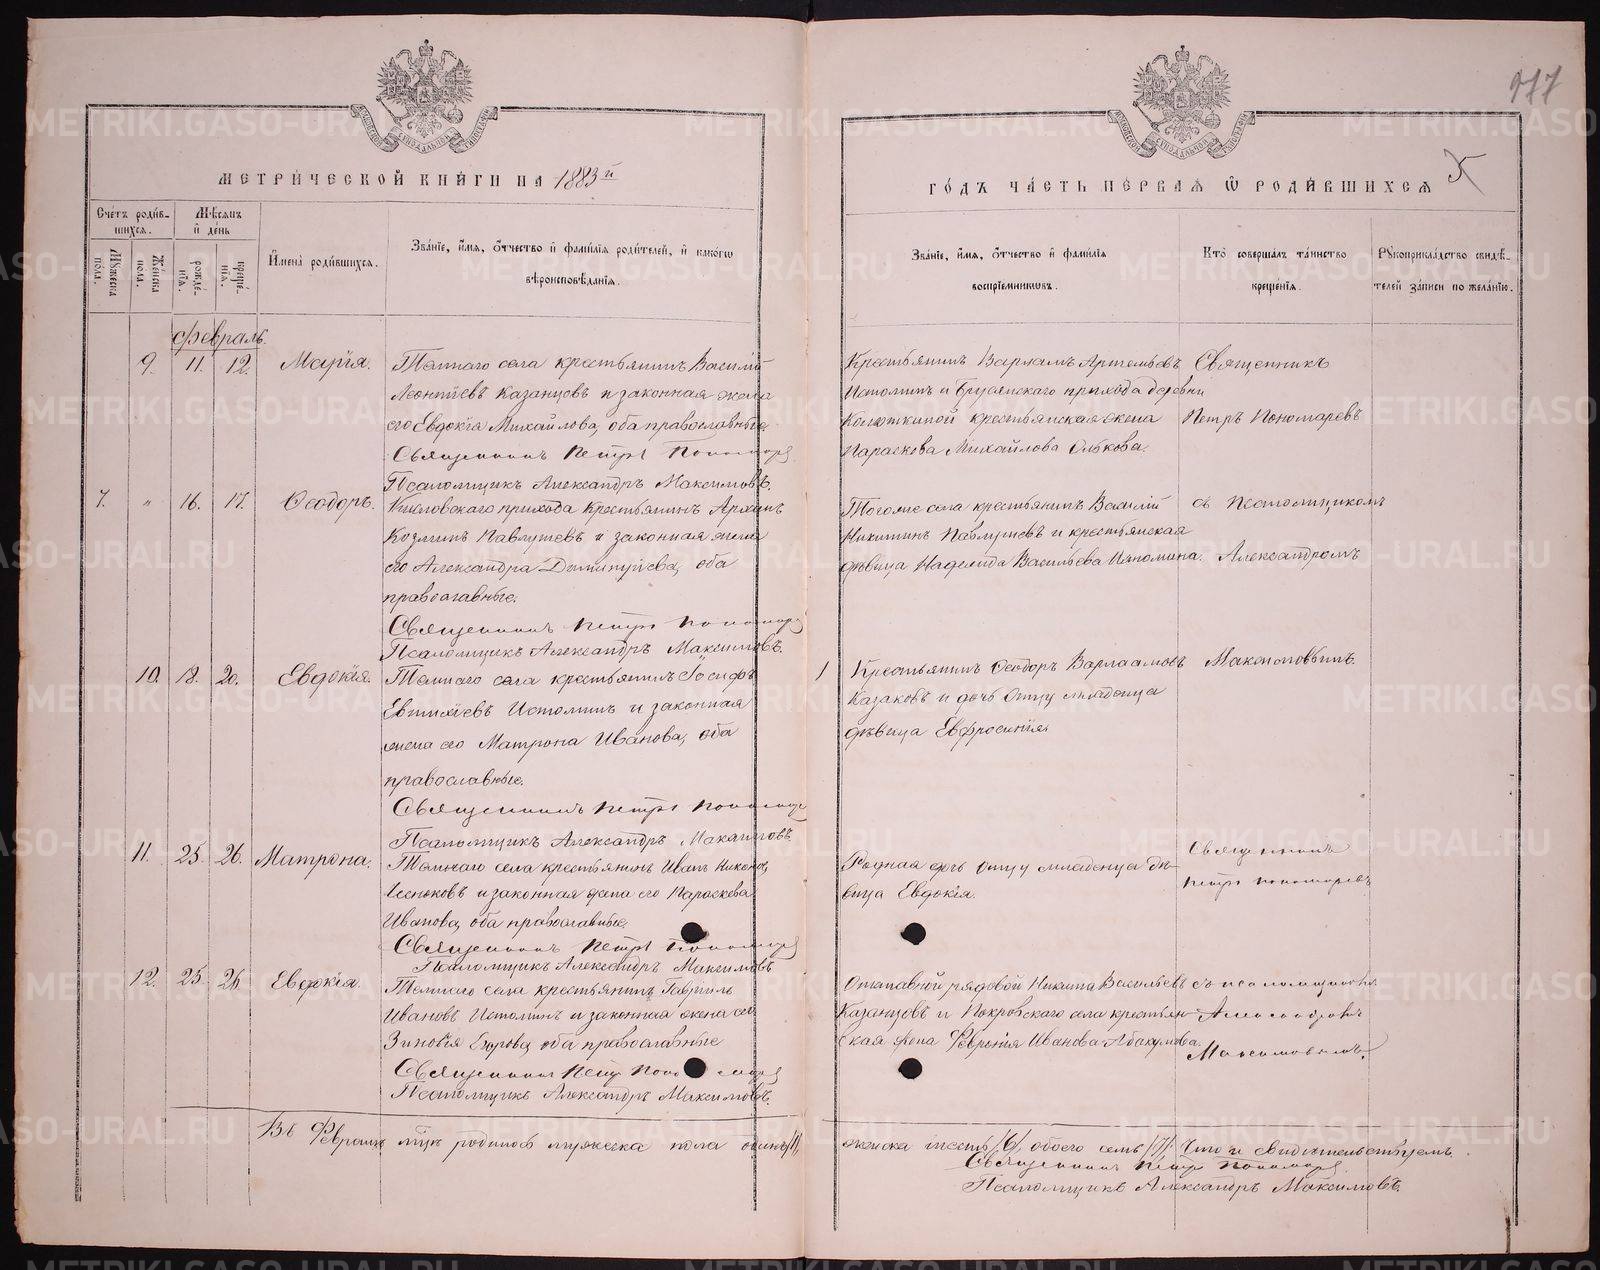 977
5
МЕТРИЧЕСКОЙ КНИГИ НА 1883й
ГОДЪ ЧАСТЬ ПЕРВАЯ Ѿ РОДИВШИХСЯ
Счетъ родившихся.
Мужеска пола.
Женска пола.
Мѣсяцъ и день
рожденія.
крещенія.
Имена родившихся.
Званіе, имя, отчество и фамилія родителей, и какогѡ
вѣроисповѣданія.
Званіе, имя, отчество и фамилія
воспріемниковъ.
Кто совершалъ таинство
крещенія.
Рукоприкладство свидѣтелей записи по желанію.
февраль.
9. 11. 12. Марія.
Темнаго села крестьянинъ Василій
Леонтіевъ Казанцовъ и законная жена
его Евдокія Михайлова, оба православные
Священникъ Петръ Пономарев
Псаломщикъ Александръ Максимовъ.
Крестьянинъ Варламъ Артемьевъ
Истоминъ и Бруснянскаго прихода деревни
Колюткиной крестьянская жена
Параскева Михайлова Олькова.
Священникъ
Петръ Пономаревъ
7. " 16. 17. Ѳеодоръ.
Кисловскаго прихода Крестьянинъ Архипъ
Козминъ Павлушевъ и законная жена
его Александра Дементіева, оба
православные.
Священникъ Петръ Пономарев
Псаломщикъ Александръ Максимовъ.
Тогоже села крестьянинъ Василій
Никитинъ Павлушевъ и крестьянская
дѣвица Надежда Васильева Истомина.
съ Псаломщикомъ
Александромъ
Максимовымъ.
10. 18. 20. Евдокія.
Темнаго села крестьянинъ Іосифъ
Евтихіевъ Истоминъ и законная
жена его Матрона Иванова, оба
православные.
Священникъ Петръ Пономарев
Псаломщикъ Александръ Максимовъ.
Крестьянинъ Ѳеодоръ Варлаамовъ
Казаковъ и дочь Отцу младенца
дѣвица Евфросинія.
11. 25. 26. Матрона.
Темнаго села крестьянинъ Иванъ Никоновъ
и законная жена его Параскева
Иванова, оба православные.
Священникъ Петръ Пономарев
Псаломщикъ Александръ Максимовъ
Родная дочь Отцу младенца дѣвица Евдокія.
Священникъ
Петръ Пономаревъ
12. 25. 26. Евдокія.
Темнаго села крестьянинъ Гавріилъ
Ивановъ Истоминъ и законная жена его
Зиновія Егорова, оба православные
Священникъ Петръ Пономарев
Псаломщикъ Александръ Максимовъ.
Отставной рядовой Никита Васильевъ
Казанцовъ и Покровскаго села крестьянская жена Февронія Иванова Абакумова.
съ псаломщикомъ
Александромъ
Максимовымъ.
Въ Февралѣ мцѣ родилось мужеска пола одинъ /1/,
женска шесть /6/, обоего семь /7/. Что и свидетельствуемъ.
Священникъ Петръ Пономарев
Псаломщикъ Александръ Максимовъ.
METRIKI.GASO-URAL.RU